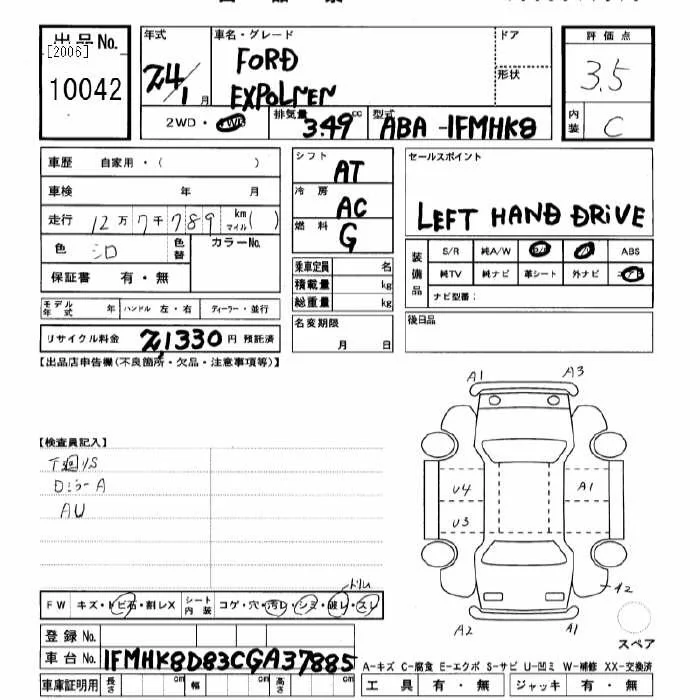 出品No.
[2006]
10042
年式
24/1月
車名・グレード
FORD
EXPOLRER
ドア
形状
評価点
3.5
内装
C
2WD・4WD
排気量
3.49cc
型式
ABA-1FMHK8
車歴 自家用・( )
車検 年 月
走行 12万7千789 km マイル( )
色 シロ
色替
カラーNo.
保証書 有・無
モデル年式 年 ハンドル 左・右 ディーラー・並行
リサイクル料金 21,330円 預託済
シフト
AT
冷房
AC
燃料
G
乗車定員 名
積載量 kg
総重量 kg
名変期限
月 日
セールスポイント
LEFT HAND DRIVE
装備品
S/R 純A/W ABS
純TV 純ナビ 革シート 外ナビ
ナビ型番:
後日品
【出品店申告欄(不良箇所・欠品・注意事項等)】
【検査員記入】
ドラーA
AU
A1
A3
U4
U3
A1
A2
A2
A1
スペア
FW キズ・トビ石・割レX シート内装 コゲ・穴・汚レ・シミ・破レ・スレ
登録No.
車台No. 1FMHK8D83CGA37885
車庫証明用 長さ cm 幅 cm 高さ cm
A-キズ C-腐食 E-エクボ S-サビ U-凹ミ W-補修 XX-交換済
工具 有・無 ジャッキ 有・無